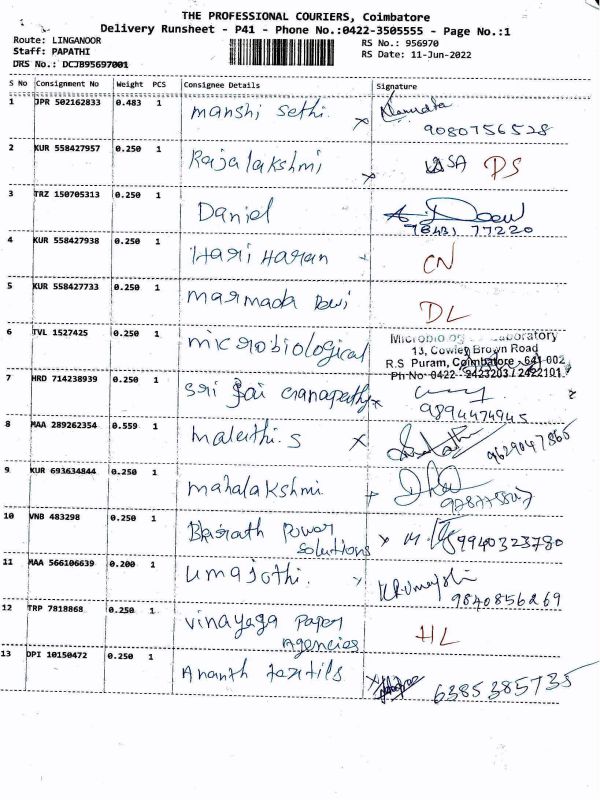 THE PROFESSIONAL COURIERS, Coimbatore
Delivery Runsheet - P41 - Phone No.:0422-3505555 - Page No.:1
Route: LINGANOOR
RS No.: 956970
Staff: PAPATHI
RS Date: 11-Jun-2022
DRS No.: DCJB95697001
S No Consignment No Weight PCS Consignee Details Signature
1 JPR 502162833 0.483 1 manshi sethi. x Namrata
9080756528
2 KUR 558427957 0.250 1 Rajalakshmi x DS
3 TRZ 150705313 0.250 1 Daniel
78431 77220
4 KUR 558427938 0.250 1 Hari Haran CN
5 KUR 558427733 0.250 1 marmada Devi DL
6 TVL 1527425 0.250 1 microbiological Laboratory
13, Cowley Brown Road
R.S Puram, Coimbatore - 641 002
Ph No 0422- 2423203 / 2422101
7 HRD 714238939 0.250 1 Sri Jai Ganapathy x
9894474945
8 MAA 289262354 0.559 1 malathi. S x 9629047865
9 KUR 693634844 0.250 1 mahalakshmi
10 VNB 483298 0.250 1 Bharath Power x 9940323780
Solutions
11 MAA 566106639 0.200 1 Umajothi. x K.R.Umajothi
9840856269
12 TRP 7818868 0.250 1 Vinayaga Paper HL
Agencies
13 DPI 10150472 0.250 1 Ananth textils x 6385385735